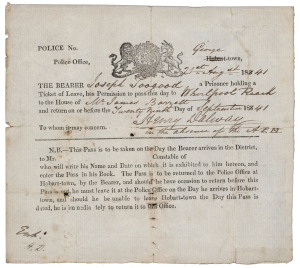 POLICE No.
George
Police-Office, Hobart-town,
21st August 1841
THE BEARER Joseph Toogood a Prisoner holding a
Ticket of Leave, has Permission to pass this day to Whirlpool Reach
to the House of Mr James Barrett
and return on or before the Twenty Ninth Day of September 1841
Henry
To whom it may concern. in the absence of the A.P.M
N.B.—This Pass is to be taken on the Day the Bearer arrives in the District,
to Mr. Constable of
who will write his Name and Date on which it is exhibited to him hereon, and
enter the Pass in his Book. The Pass is to be returned to the Police Office at
Hobart-town, by the Bearer, and should he have occasion to return before this
Pass is out, he must leave it at the Police Office on the Day he arrives in Hobart-
town, and should he be unable to leave Hobart-town the Day this Pass is
dated, he is immediately to return it to the Office.